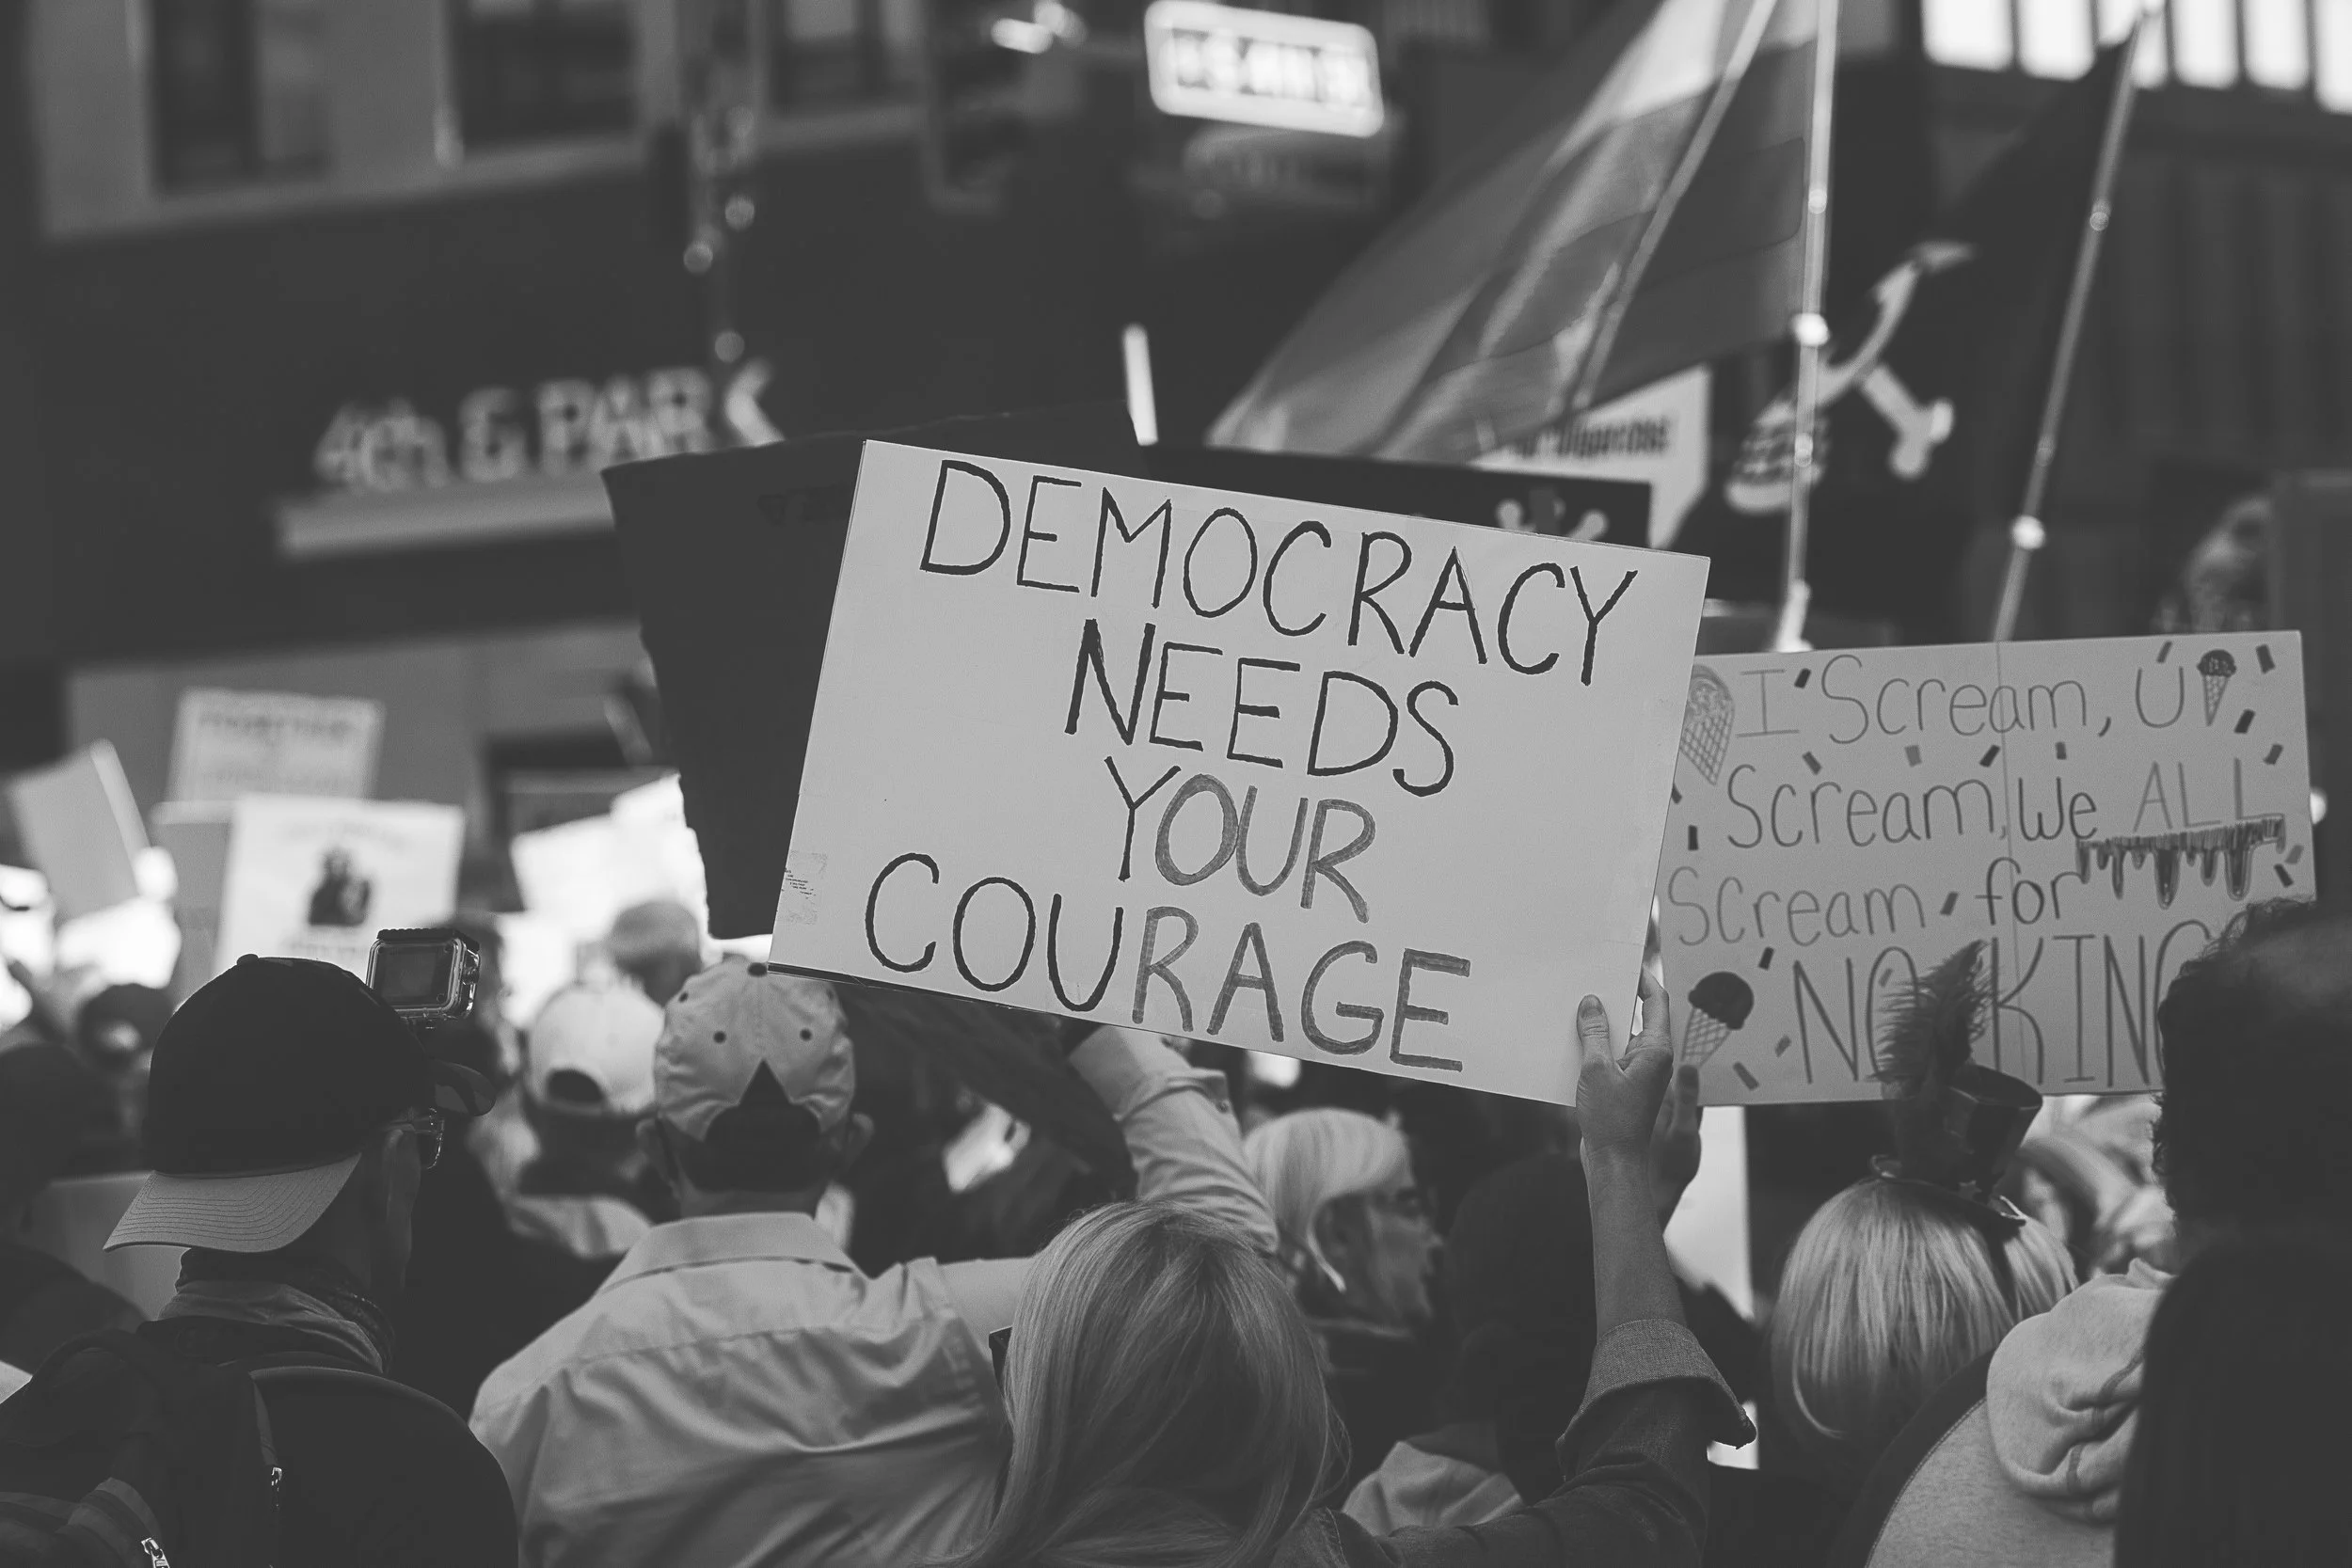 4th & PARK
DEMOCRACY
NEEDS
YOUR
COURAGE
I Scream, U
Scream, we ALL
Scream for
NO KING